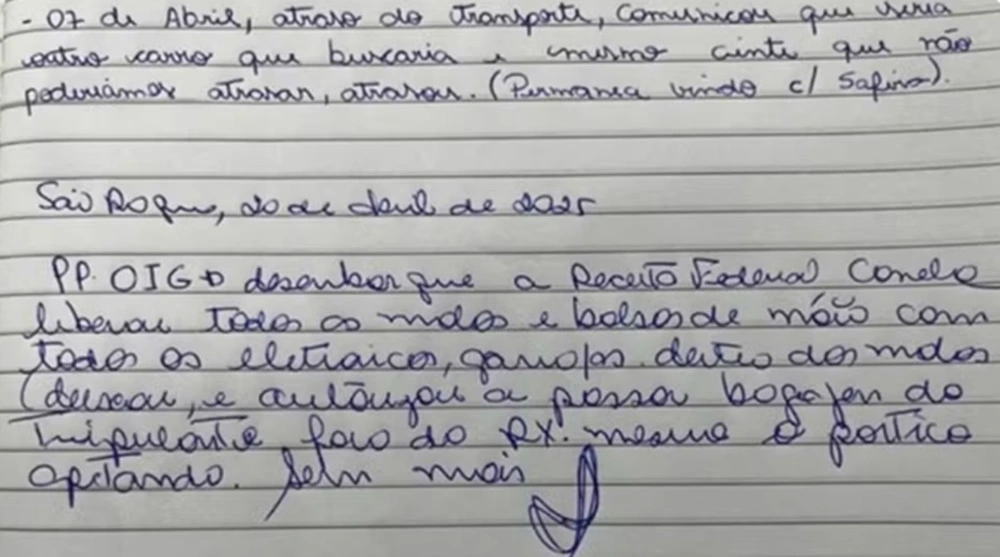 - 07 de Abril, atraso do transporte, comunicou que viria
outro carro que buscaria e mesmo ciente que não
poderiamos atrasar, atrasou. (Permanea vindo c/ Safira).
São Roque, 20 de abril de 2025
PP. OIG desembarque a Receita Federal Canela
liberou todas as malas e bolsas de mão com
todos os eletrônicos, garrafas dentro das malas
(deixou, e autorizou a passar bagagem do
tripulante fora do RX. mesmo o pórtico
apitando. Sem mais